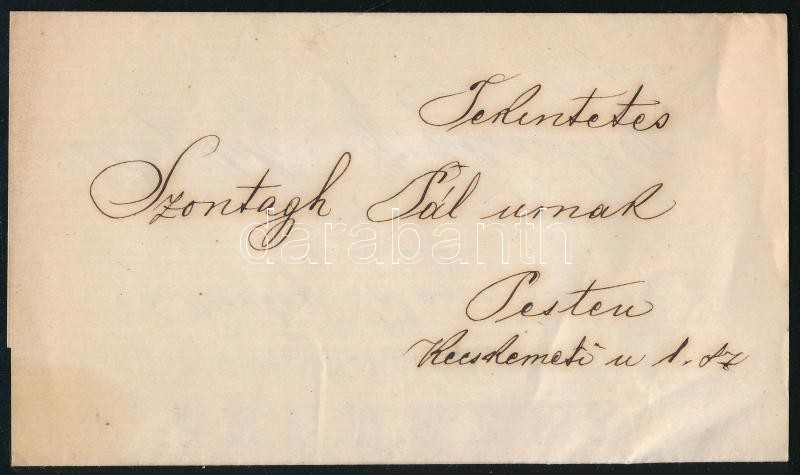 Tekintetes
Szontagh Pál urnak
darabanth
Pesten
Kecskeméti u 1. sz